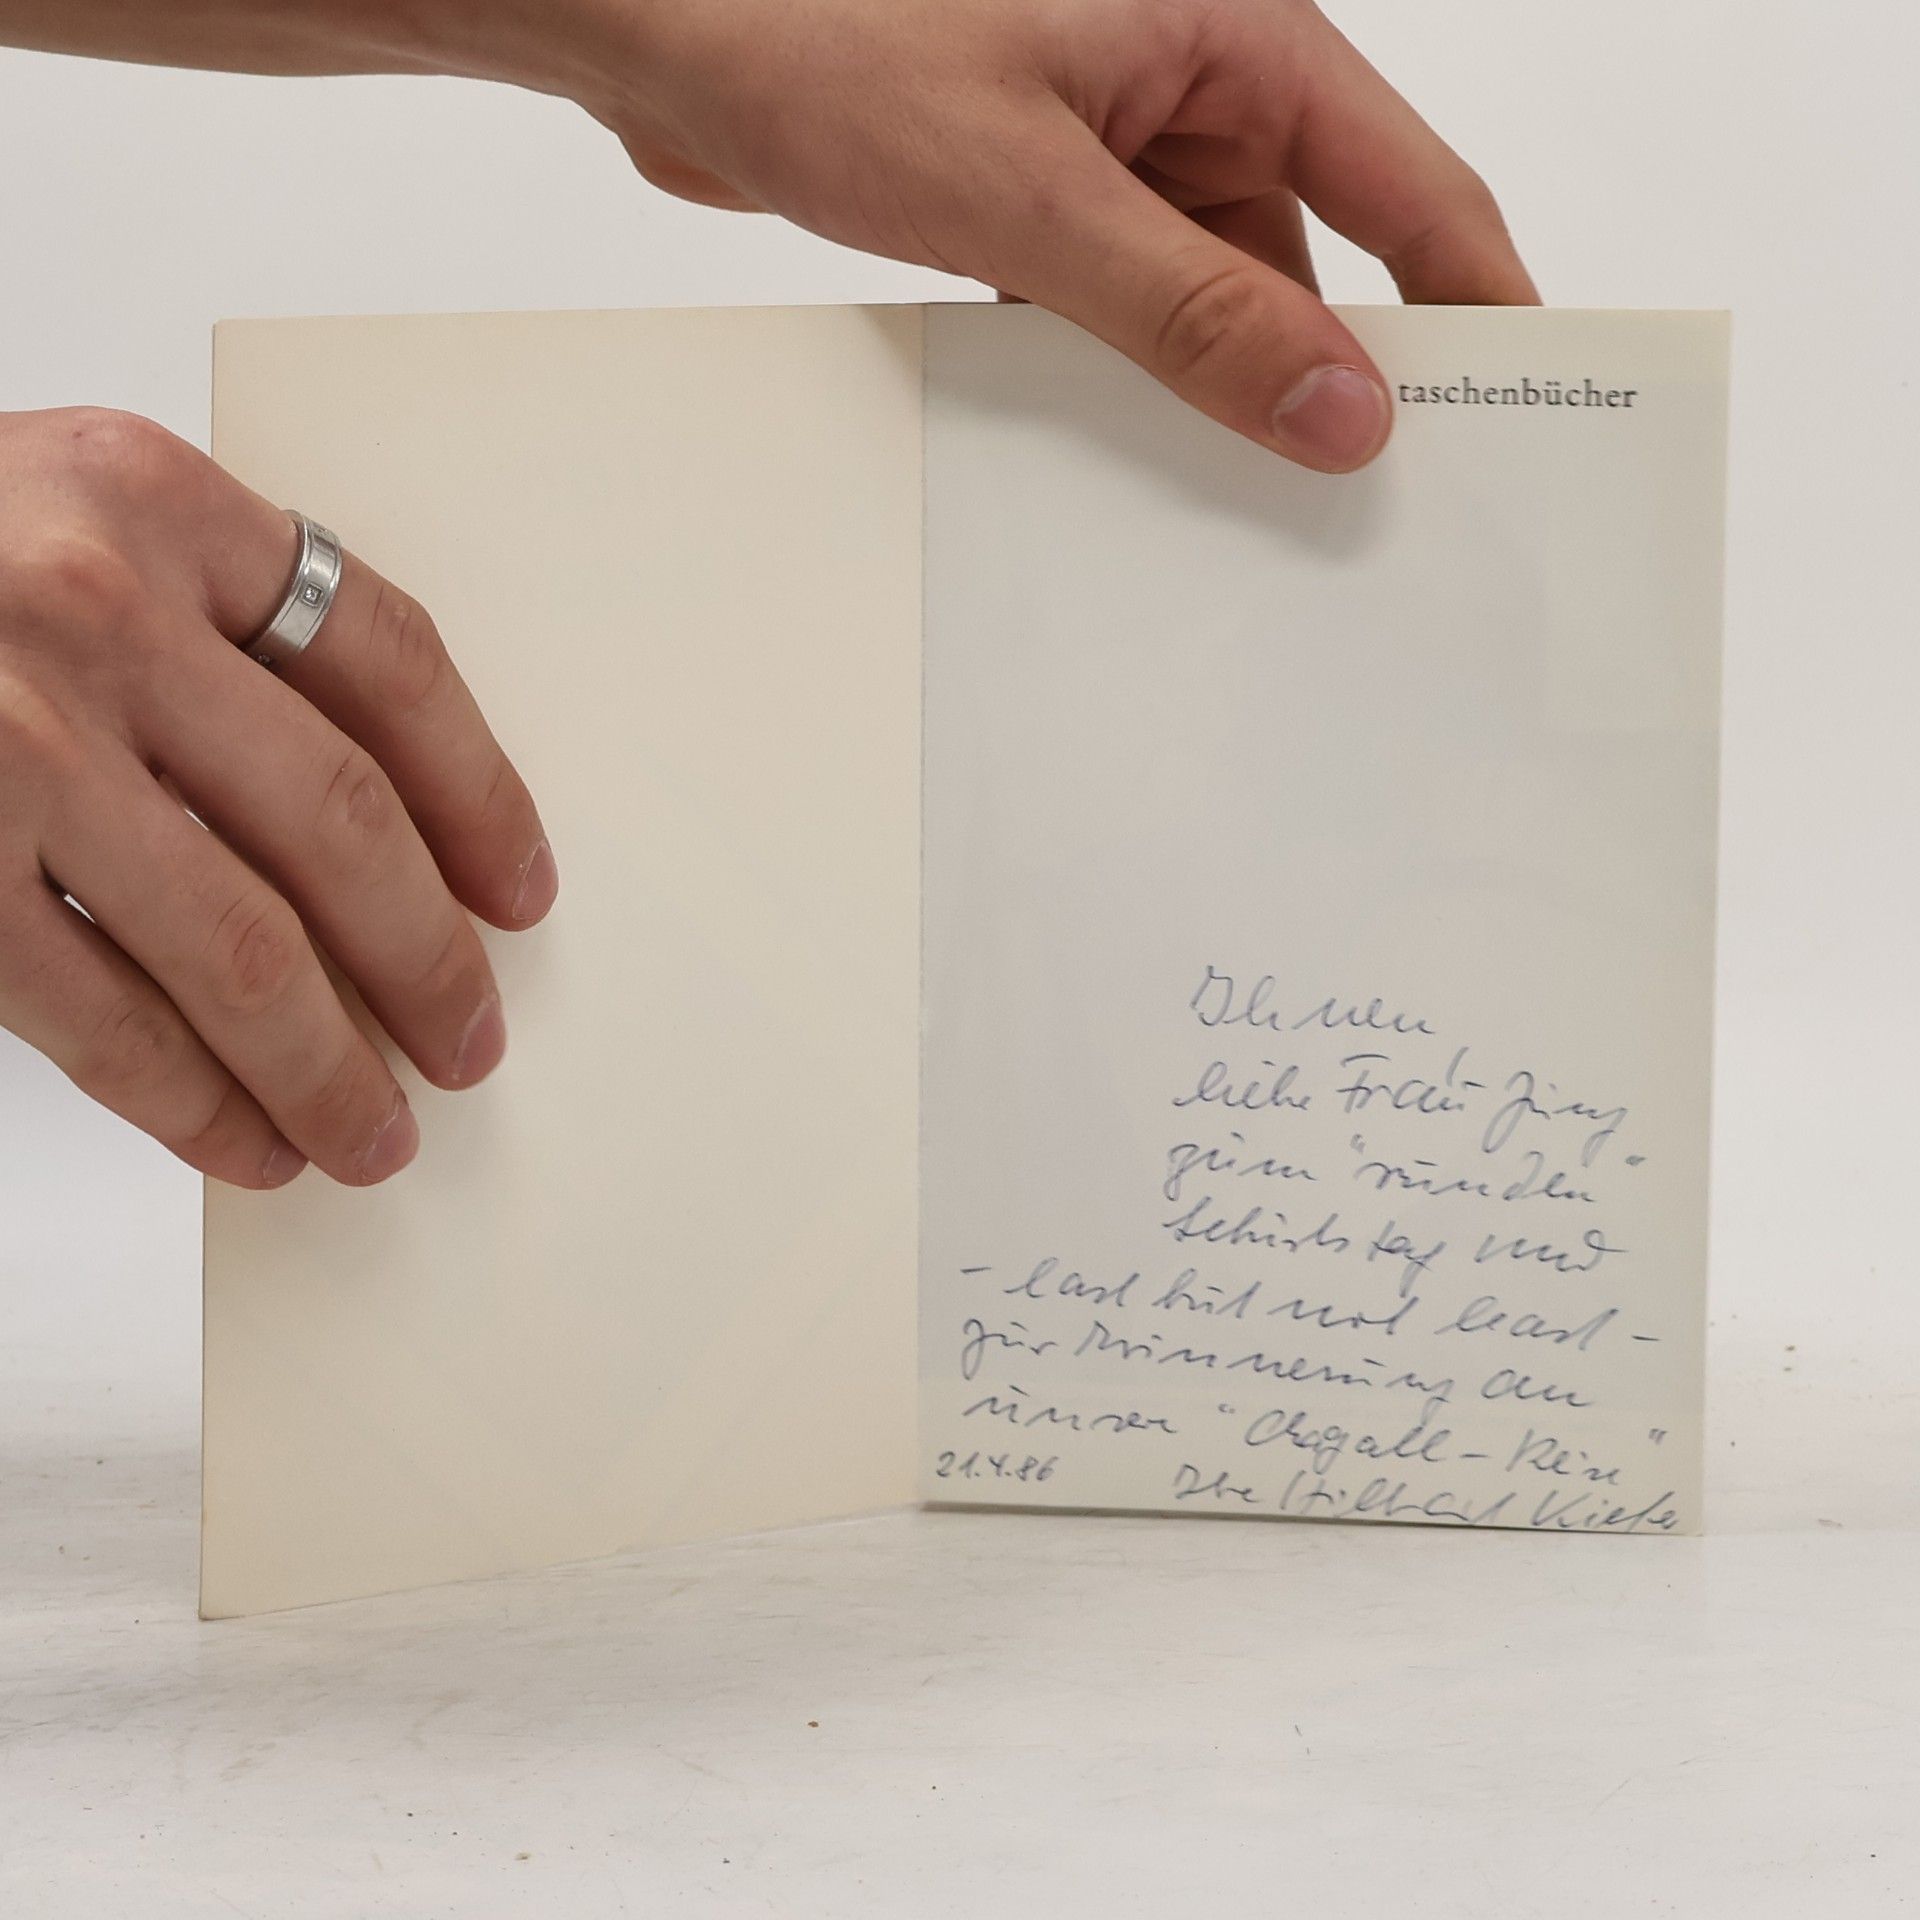 taschenbücher
Ihnen
liebe Frau Jung
zum "runden"
Geburtstag und
- last but not least -
zur Erinnerung an
unsere "Chagall-Reise"
21.4.86 Ihre Kiefer